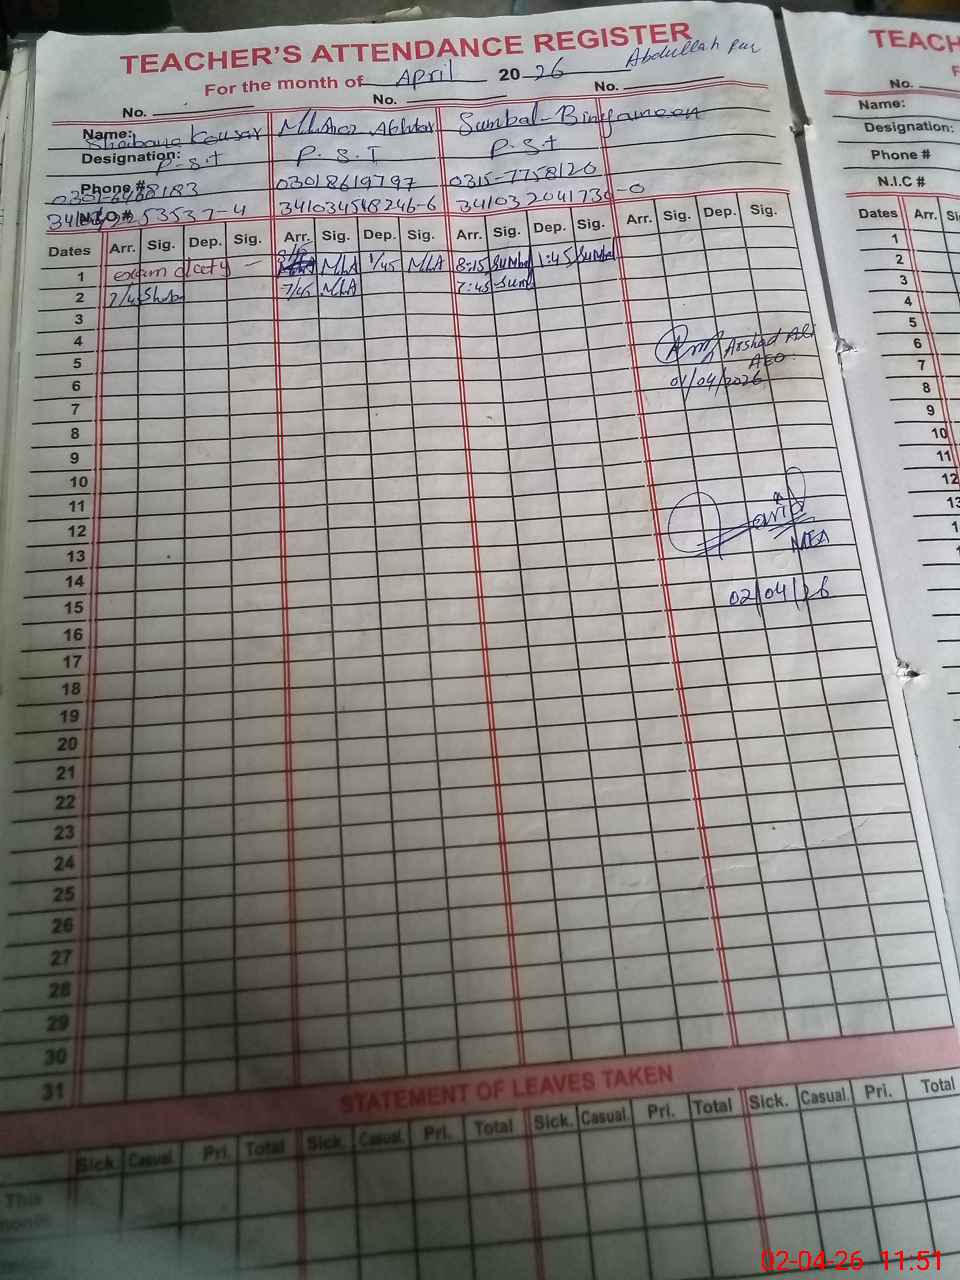 TEACHER'S ATTENDANCE REGISTER
For the month of April 2026 Abdullah Pur
No. No. No.
Name: Shaibana Kousar Akhtar Sumbal-Binyameen
Designation: P.S.T P.S.T P.S.t
Phone # 03018619797 0315-7758120
N.I.C # 341034548246-6 341032041730-0
Dates Arr. Sig. Dep. Sig. Arr. Sig. Dep. Sig. Arr. Sig. Dep. Sig. Arr. Sig. Dep. Sig.
1 exam duty - MLA 1/45 MLA 8:15 Sumbal 1:45 Sumbal
2 7/45 Shab 7/45 MLA 7:45 Sum
3
4
5
6
7
8
9
10
11
12
13
14
15
16
17
18
19
20
21
22
23
24
25
26
27
28
29
30
31
Arshad Ali
AEO
01/04/2026
MEA
02/04/26
STATEMENT OF LEAVES TAKEN
Sick. Casual. Pri. Total Sick. Casual. Pri. Total Sick. Casual. Pri. Total Sick. Casual. Pri. Total
This
month
TEACH
No.
Name:
Designation:
Phone #
N.I.C #
Dates Arr.
1
2
3
4
5
6
7
8
9
10
11
12
02-04-26 11:51